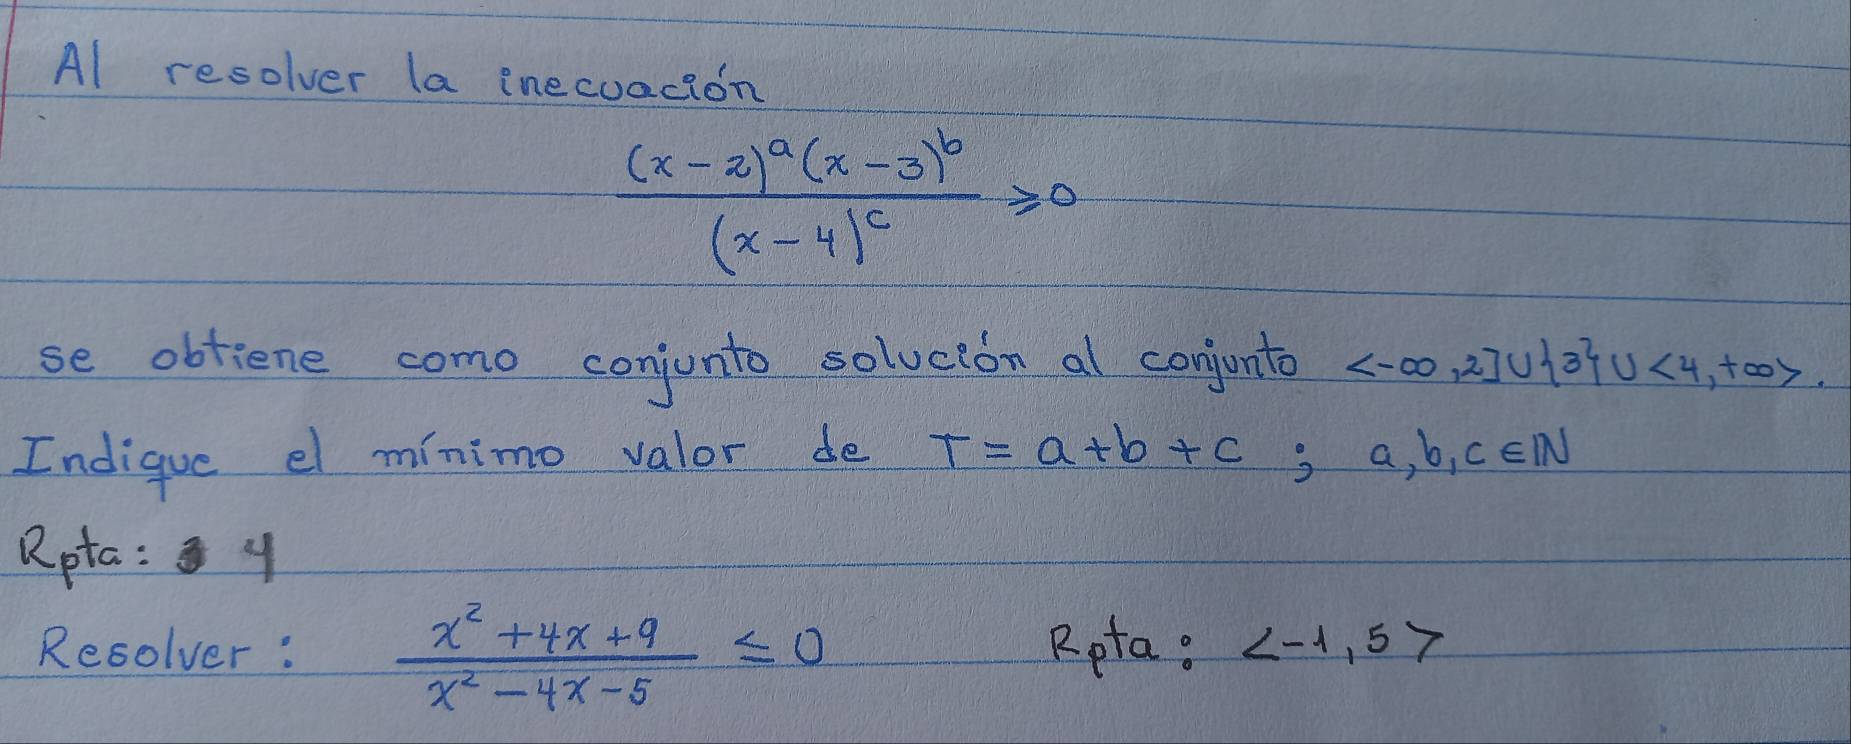 Al resolver la inecuación
(x-2)^a (x-3)^b
/ (x-4)^c ≥0
se obtiene como conjunto solución al conjunto <-∞,2]∪{3}∪<4,+∞>.
Indique el mínimo valor de T=a+b+c ; a,b,c∈ℕ
Rpta: 4
Resolver: (x²+4x+9)/(x²-4x-5) ≤ 0 Rpta: <-1,5>